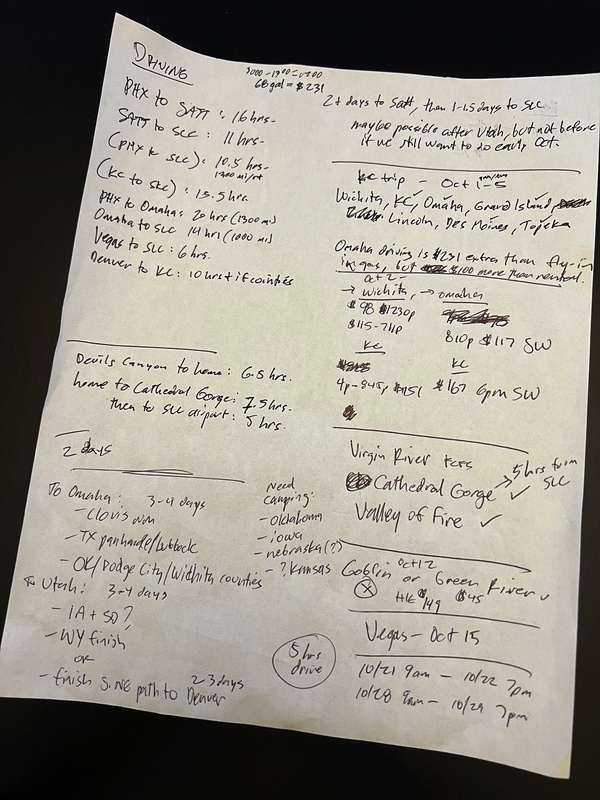 DRIVING
3000-1900=1100
68 gal = $231
PHX to SATT: 16 hrs-
SATT to SLC: 11 hrs-
(PHX to SLC): 10.5 hrs-
(KC to SLC): 15.5 hrs.
PHX to Omaha: 20 hrs (1300 mi)
Omaha to SLC 14 hrs (1000 mi)
Vegas to SLC: 6 hrs.
Denver to KC: 10 hrs + if counties
Devils Canyon to home: 6.5 hrs.
home to Cathedral Gorge: 7.5 hrs-
then to SLC airport: 5 hrs.
2 days
To Omaha: 3-4 days
- Clovis NM
- TX panhandle/Lubbock
- OK/Dodge City/Wichita counties
To Utah: 3-4 days
- IA + SD?
- WY finish
or
- finish S. NE path to Denver
2-3 days
need
camping:
- oklahoma
- iowa
- nebraska(?)
- ? Kansas
5 hrs
drive
2+ days to Satt, then 1-1.5 days to SLC
maybe possible after Utah, but not before
if we still want to do early Oct.
KC trip - Oct 1-5
Wichita, KC, Omaha, Grand Island,
Lincoln, Des Moines, Topeka
Omaha driving is $231 extra than fly-in
in gas, but $100 more than rental.
Oct 2-
→ Wichita, → Omaha
$98 1230p
$115-711p
810p $117 SW
KC
4p-845p $151
KC
$167 6pm SW
Virgin River
Cathedral Gorge ✓ → 5 hrs from SLC
Valley of Fire ✓
Oct 12
Goblin or Green River ✓
HK $149 $45
Vegas - Oct 15
10/21 9am - 10/22 7pm
10/28 9am - 10/29 7pm